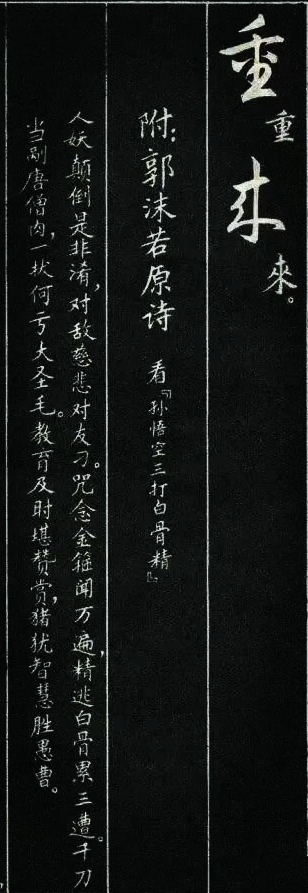 重重来來。
附：郭沫若原诗 看『孙悟空三打白骨精』
人妖颠倒是非淆，对敌慈悲对友刀。咒念金箍闻万遍，精逃白骨累三遭。千刀
当剐唐僧肉，一拔何亏大圣毛。教育及时堪赞赏，猪犹智慧胜愚曹。